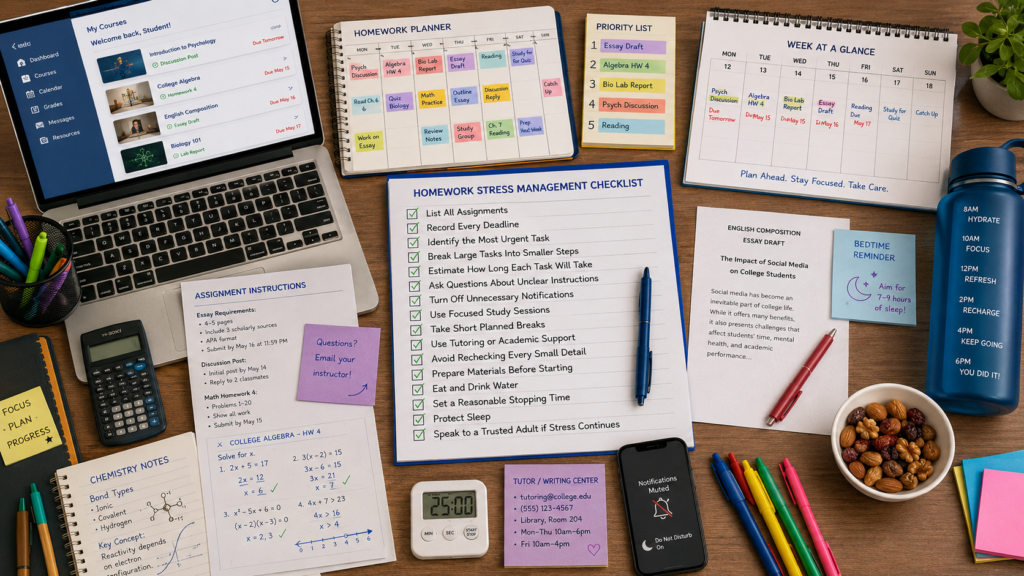 My Courses
Welcome back, Student!
Dashboard
Courses
Calendar
Grades
Messages
Resources
Introduction to Psychology
Discussion Post
Due Tomorrow
College Algebra
Homework 4
Due May 15
English Composition
Essay Draft
Due May 16
Biology 101
Lab Report
Due May 17
HOMEWORK PLANNER
MON TUE WED THU FRI SAT SUN
Psych Discussion
Algebra HW 4
Bio Lab Report
Essay Draft
Reading
Study for Quiz
Read Ch. 6
Quiz Biology
Math Practice
Outline Essay
Discussion Reply
Catch Up
Work on Essay
Review Notes
Study Group
Ch. 7 Reading
Prep Next Week
PRIORITY LIST
1 Essay Draft
2 Algebra HW 4
3 Bio Lab Report
4 Psych Discussion
5 Reading
WEEK AT A GLANCE
MON TUE WED THU FRI SAT SUN
12 13 14 15 16 17 18
Psych Discussion
Due Tomorrow
Algebra HW 4
Due May 15
Bio Lab Report
Due May 15
Essay Draft
Due May 16
Reading
Due May 17
Study for Quiz
Catch Up
Plan Ahead. Stay Focused. Take Care.
HOMEWORK STRESS MANAGEMENT CHECKLIST
List All Assignments
Record Every Deadline
Identify the Most Urgent Task
Break Large Tasks Into Smaller Steps
Estimate How Long Each Task Will Take
Ask Questions About Unclear Instructions
Turn Off Unnecessary Notifications
Use Focused Study Sessions
Take Short Planned Breaks
Use Tutoring or Academic Support
Avoid Rechecking Every Small Detail
Prepare Materials Before Starting
Eat and Drink Water
Set a Reasonable Stopping Time
Protect Sleep
Speak to a Trusted Adult if Stress Continues
ENGLISH COMPOSITION
ESSAY DRAFT
The Impact of Social Media
on College Students
Social media has become an
inevitable part of college life.
While it offers many benefits,
it also presents challenges that
affect students' time, mental
health, and academic
performance...
BEDTIME
REMINDER
Aim for
7–9 hours
of sleep!
8AM
HYDRATE
10AM
FOCUS
12PM
REFRESH
2PM
RECHARGE
4PM
KEEP GOING
6PM
YOU DID IT!
ASSIGNMENT INSTRUCTIONS
Essay Requirements:
• 4–5 pages
• Include 3 scholarly sources
• APA format
• Submit by May 16 at 11:59 PM
Discussion Post:
• Initial post by May 14
• Reply to 2 classmates
Math Homework 4:
• Problems 1–20
• Show all work
• Submit by May 15
Questions?
Email your
instructor!
FOCUS
PLAN
PROGRESS
CHEMISTRY NOTES
Bond Types
- Ionic
- Covalent
- Hydrogen
Key Concept:
Reactivity depends
on electron
configuration.
COLLEGE ALGEBRA - HW 4
Solve for x.
1. 2x + 5 = 17
2x = 12
x = 6
2. 3(x − 2) = 15
3x − 6 = 15
3x = 21
x = 7
3. x² − 5x + 6 = 0
(x − 2)(x − 3) = 0
x = 2, 3
4. 4x + 7 > 23
4x > 16
x > 4
25:00
MIN
SEC
START
STOP
TUTOR / WRITING CENTER
• tutoring@college.edu
• (555) 123-4567
• Library, Room 204
• Mon–Thu 10am–6pm
• Fri 10am–4pm
Notifications
Muted
Do Not Disturb
On